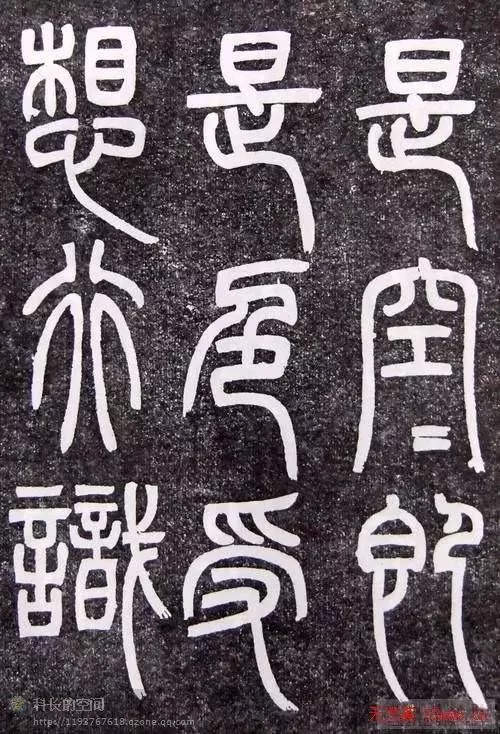 是空＝即
是色受
想行識
科仪的空间
https://1193767618.qzone.qq.com